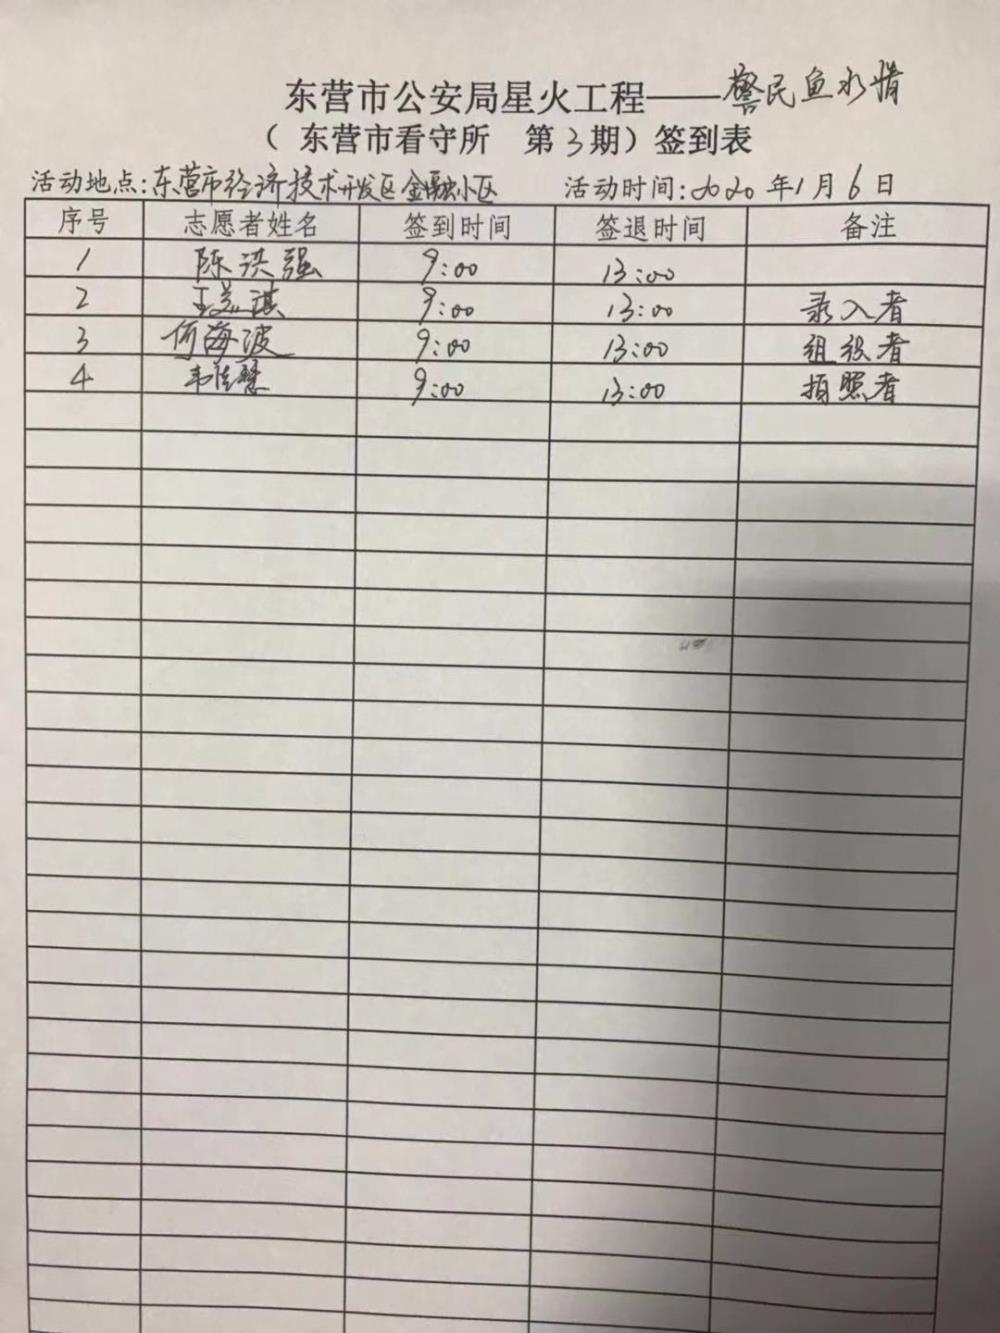 东营市公安局星火工程——警民鱼水情
（ 东营市看守所 第3期）签到表
活动地点:东营市经济技术开发区金融小区 活动时间:2020年1月6日
序号 志愿者姓名 签到时间 签退时间 备注
1 陈洪强 9:00 13:00
2 王 淇 9:00 13:00 录入者
3 何海波 9:00 13:00 组织者
4 韦佳慧 9:00 13:00 拍照者